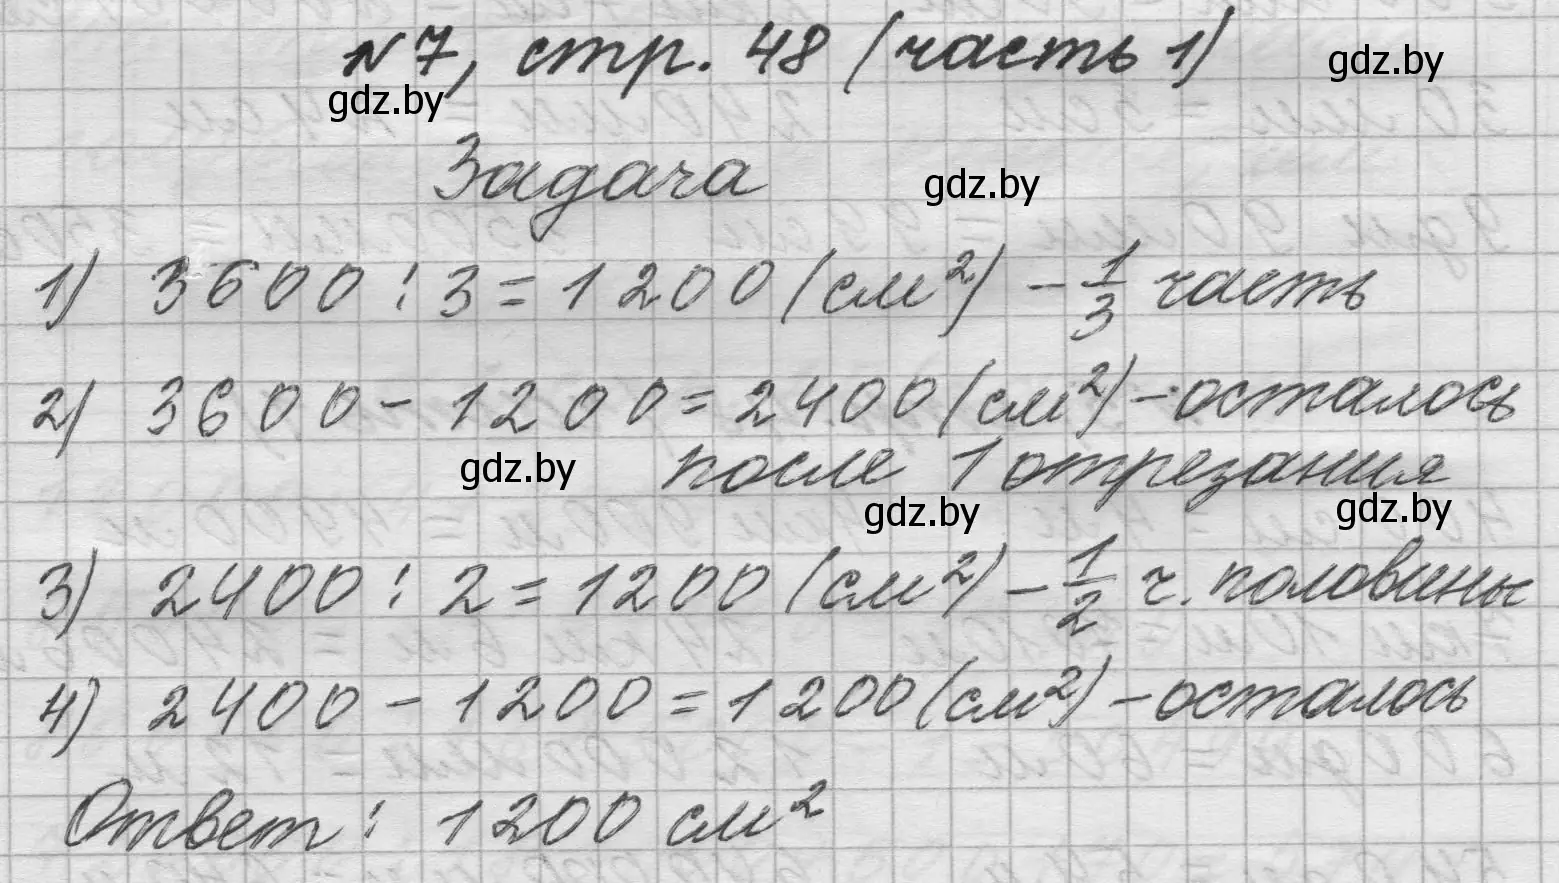 №7, стр. 48 (часть 1)
gdz.by
gdz.by
Задача
gdz.by
1) 3600 : 3 = 1200 (см²) - 1/3 часть
2) 3600 - 1200 = 2400 (см²) - осталось
после 1 отрезания
gdz.by
gdz.by
gdz.by
3) 2400 : 2 = 1200 (см²) - 1/2 ч. половины
4) 2400 - 1200 = 1200 (см²) - осталось
Ответ: 1200 см²